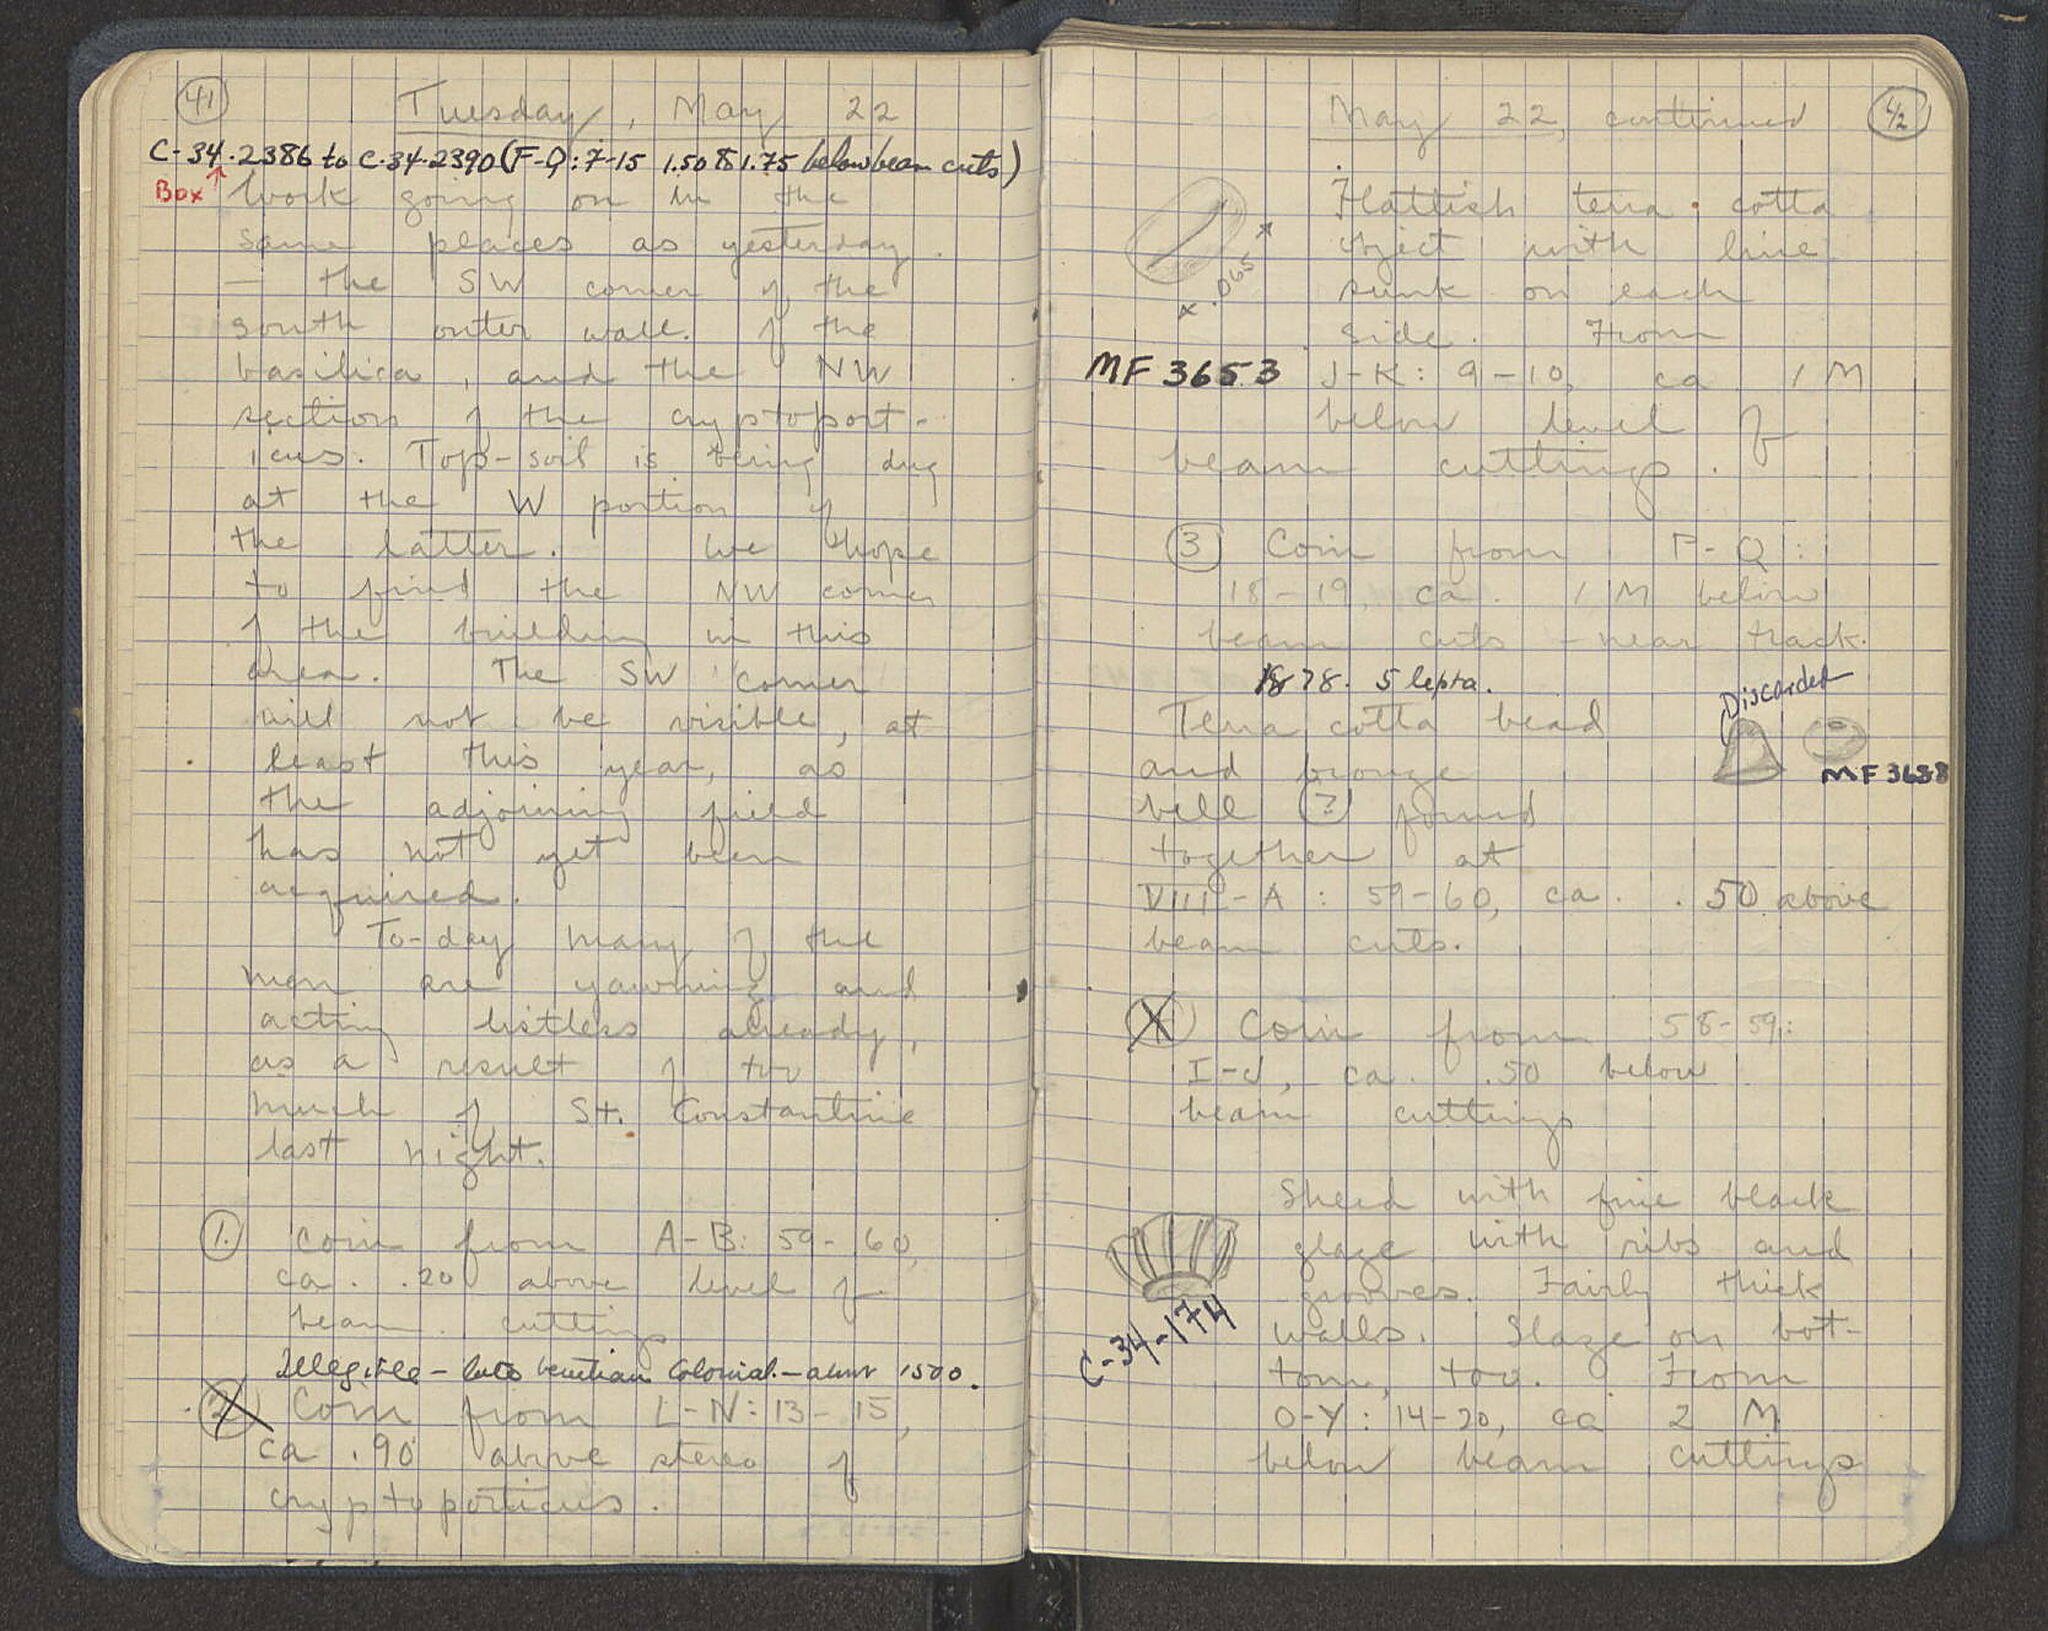 41
Tuesday, May 22
C-34-2386 to C-34-2390 (F-Q: 7-15 1.50 & 1.75 below beam cuts)
Box
Work going on in the
same places as yesterday.
— the SW corner of the
south outer wall of the
basilica, and the NW
section of the cryptoport-
icus. Top-soil is being dug
at the W portion of
the latter. We hope
to find the NW corner
of the building in this
area. The SW corner
will not be visible, at
least this year, as
the adjoining field
has not yet been
acquired.
To-day many of the
men are yawning and
acting listless already,
as a result of too
much of St. Constantine
last night.
1. Coin from A-B: 59-60,
ca. .20 above level of
beam cuttings
Illegible - late Venetian Colonial - about 1500.
2 Coin from L-N: 13-15,
ca .90 above stereo of
cryptoporticus.
May 22, continued
42
Flattish terra cotta
object with line
sunk on each
side. From
x .065 x
MF 3653 J-K: 9-10, ca 1 M
below level of
beam cuttings.
3 Coin from P-Q:
18-19, ca. 1 M below
beam cuts - near track.
1878. 5 lepta.
Terra cotta bead
Discarded
and bronze
MF 3658
bell (?) found
together at
VIII-A: 59-60, ca. .50 above
beam cuts.
4 Coin from 58-59:
I-J, ca. .50 below
beam cuttings
Sherd with fine black
glaze with ribs and
grooves. Fairly thick
walls. Glaze on bot-
C-34-174
tom, too. From
O-Y: 14-20, ca 2 M
below beam cuttings